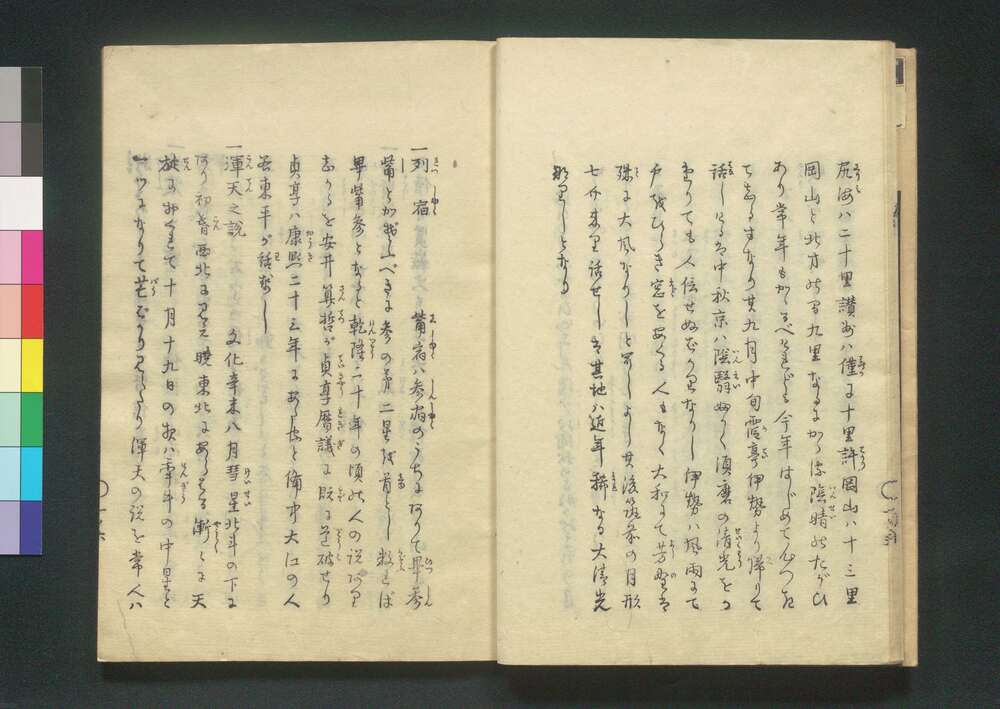 尻海ハ二十里讃州ハ僅に十里許岡山ハ十三里
岡山と北方の間九里なるにかく陰晴のたがひ
あり常年もかゝるべけれども今年はじめてこゝろつき
てしるすなり其九月中旬霞亭伊勢より帰りて
話しけるは中秋京ハ陰翳ふかく須磨の清光をか
たりても人信せぬばかりなりし伊勢ハ風雨にて
戸をひらき窓をあくる人もなく大和にて芳野は
殊に大風なりしと聞しより其後筑前の月形
七介来り話せしは其地ハ近年稀なる大清光
なりしとなむ
一列宿 觜宿ハ参宿のうちにありて畢参
觜とかぞふべきに参の第二星を首とし数れば
畢觜参となると乾隆二十年の頃の人の説あり
しかるを安井算哲が貞享暦議に既に道破せり
貞享ハ康熙二十三年にあたると備中大江の人
谷東平が話なし
一渾天之説 文化辛未八月彗星北斗の下に
あり初昏西北に見え暁東北にあらはる漸々に天
旋におくれて十月十九日の夜ハ牽牛の中星と
一ツになりて芒ばかり見えたり渾天の説を常人ハ